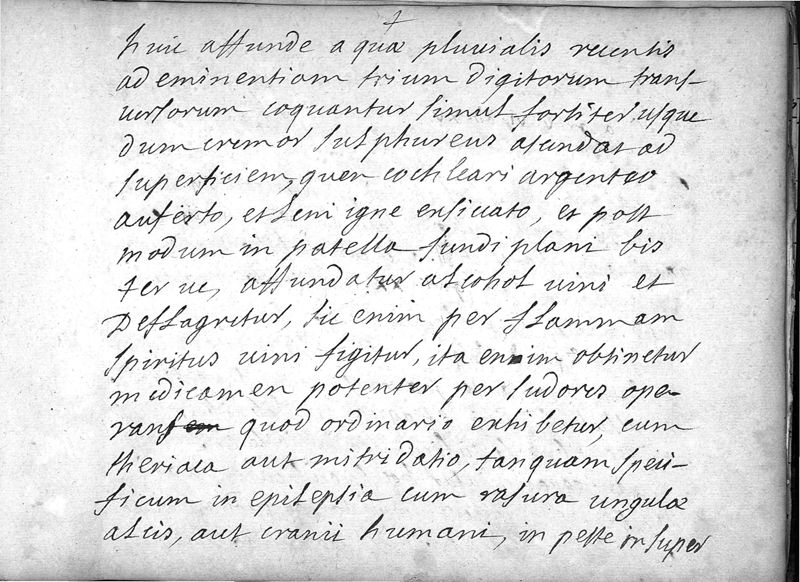 huic affunde aquæ pluvialis recentis
ad eminentiam trium digitorum trans-
versorum coquantur simul fortiter, usque
dum cremor sulphureus ascendat ad
superficiem, quem cochleari argenteo
auferto, et leni igne exsiccato, et post
modum in patella fundi plani bis
ter ve, affundatur alcohol vini et
Deflagretur, sic enim per flammam
spiritus vini figitur, ita enim obtinetur
medicamen potenter per sudores ope-
rans quod ordinario exhibetur, cum
theriaca aut mitridatio, tanquam speci-
ficum in epilepsia cum rasura ungulæ
alcis, aut cranii humani, in peste insuper